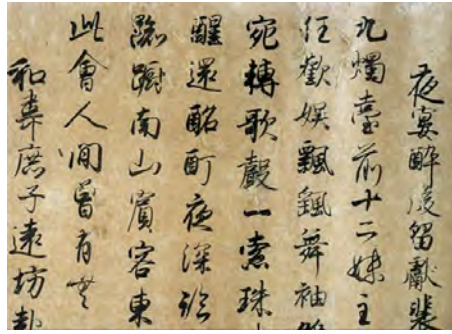 夜宴醉後留獻裴
九燭臺前十二姝主
任歡娛飄飄舞袖
宛轉歌聲一索珠
醒還酩酊夜深初
踟躕南山賓客東
此會人間曾有無
和韋庶子遠坊赴